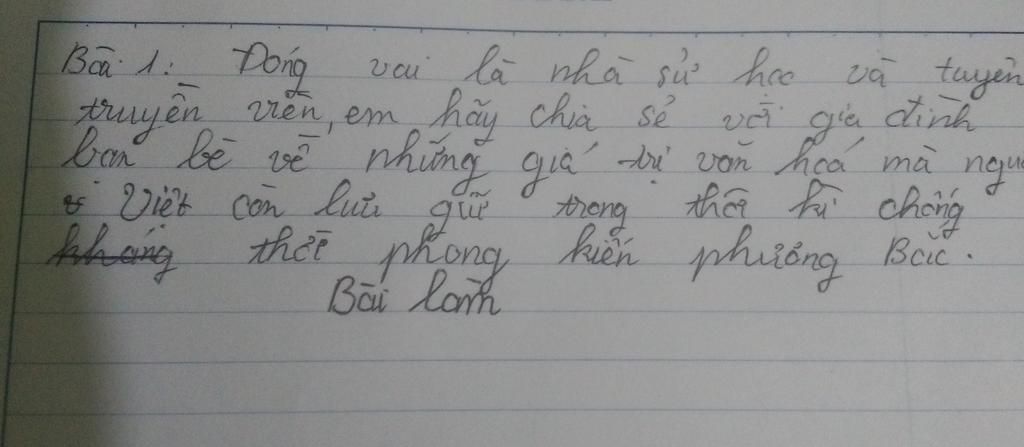 Bài 1: Đóng vai là nhà sử học và tuyên
truyền viên, em hãy chia sẻ với gia đình
bạn bè về những giá trị văn hoá mà ngư
ời Việt còn lưu giữ trong thời kì chống
kháng thời phong kiến phương Bắc.
Bài làm